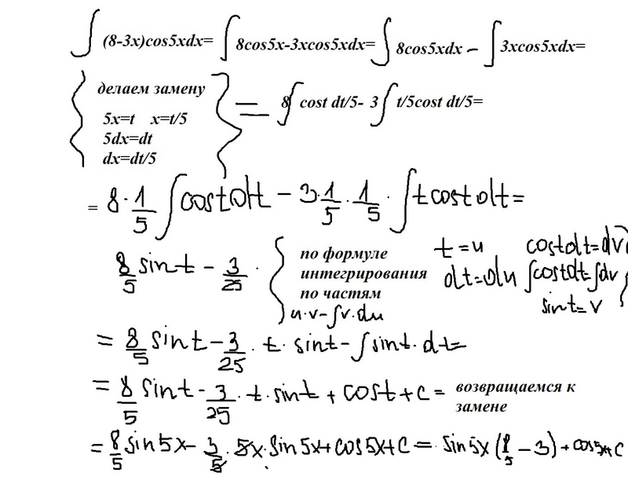 ∫(8-3x)cos5xdx= ∫8cos5x-3xcos5xdx= ∫8cos5xdx – ∫3xcos5xdx=
делаем замену
5x=t x=t/5
5dx=dt
dx=dt/5
= 8∫cost dt/5- 3∫t/5cost dt/5=
= 8·1/5 ∫costdt – 3·1/5·1/5·∫tcostdt=
8/5 sint – 3/25 ·
по формуле
интегрирования
по частям
u·v-∫v·du
t=u costdt=dv
dt=du ∫costdt=∫dv
sint=v
= 8/5 sint – 3/25 · t · sint – ∫sint·dt=
= 8/5 sint – 3/25 · t·sint + cost+c = возвращаемся к
замене
= 8/5 sin5x – 3/5 · 5x·sin5x+cos5x+c = sin5x(8/5 – 3)+cos5x+c